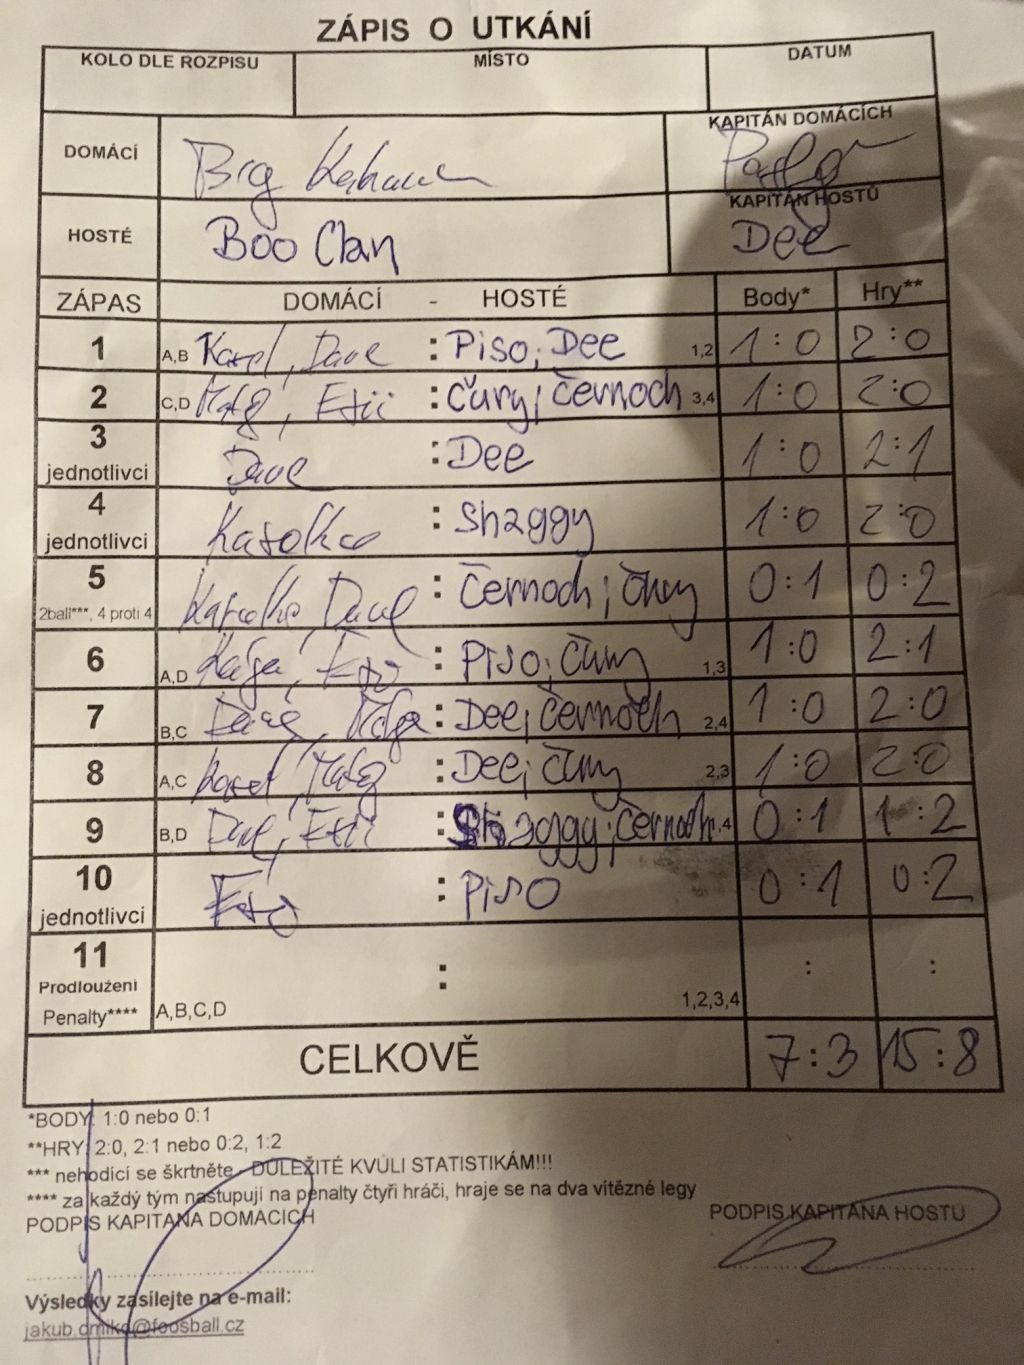 ZÁPIS O UTKÁNÍ
KOLO DLE ROZPISU MÍSTO DATUM
DOMÁCÍ Big KAPITÁN DOMÁCÍCH
HOSTÉ Boo Clan KAPITÁN HOSTŮ Dee
ZÁPAS DOMÁCÍ - HOSTÉ Body* Hry**
1 A,B Karel, Dave : Piso, Dee 1,2 1:0 2:0
2 C,D : Čury, černoch 3,4 1:0 2:0
3 jednotlivci Dave : Dee 1:0 2:1
4 jednotlivci Karolko : Shaggy 1:0 2:0
5 2bali***, 4 proti 4 Karolko, Dave : Černoch, Čury 0:1 0:2
6 A,D Kája, Eso : Piso, Čury 1,3 1:0 2:1
7 B,C Dave, : Dee, černoch 2,4 1:0 2:0
8 A,C Karel, : Dee, čury 2,3 1:0 2:0
9 B,D Dave, : Shaggy, černoch 4 0:1 1:2
10 jednotlivci Eso : Piso 0:1 0:2
11 Prodloužení Penalty**** A,B,C,D : 1,2,3,4 : :
CELKOVĚ 7:3 15:8
*BODY: 1:0 nebo 0:1
**HRY: 2:0, 2:1 nebo 0:2, 1:2
*** nehodící se škrtněte - DŮLEŽITÉ KVŮLI STATISTIKÁM!!!
**** za každý tým nastupují na penalty čtyři hráči, hraje se na dva vítězné legy
PODPIS KAPITÁNA DOMÁCÍCH PODPIS KAPITÁNA HOSTŮ
Výsledky zasílejte na e-mail: